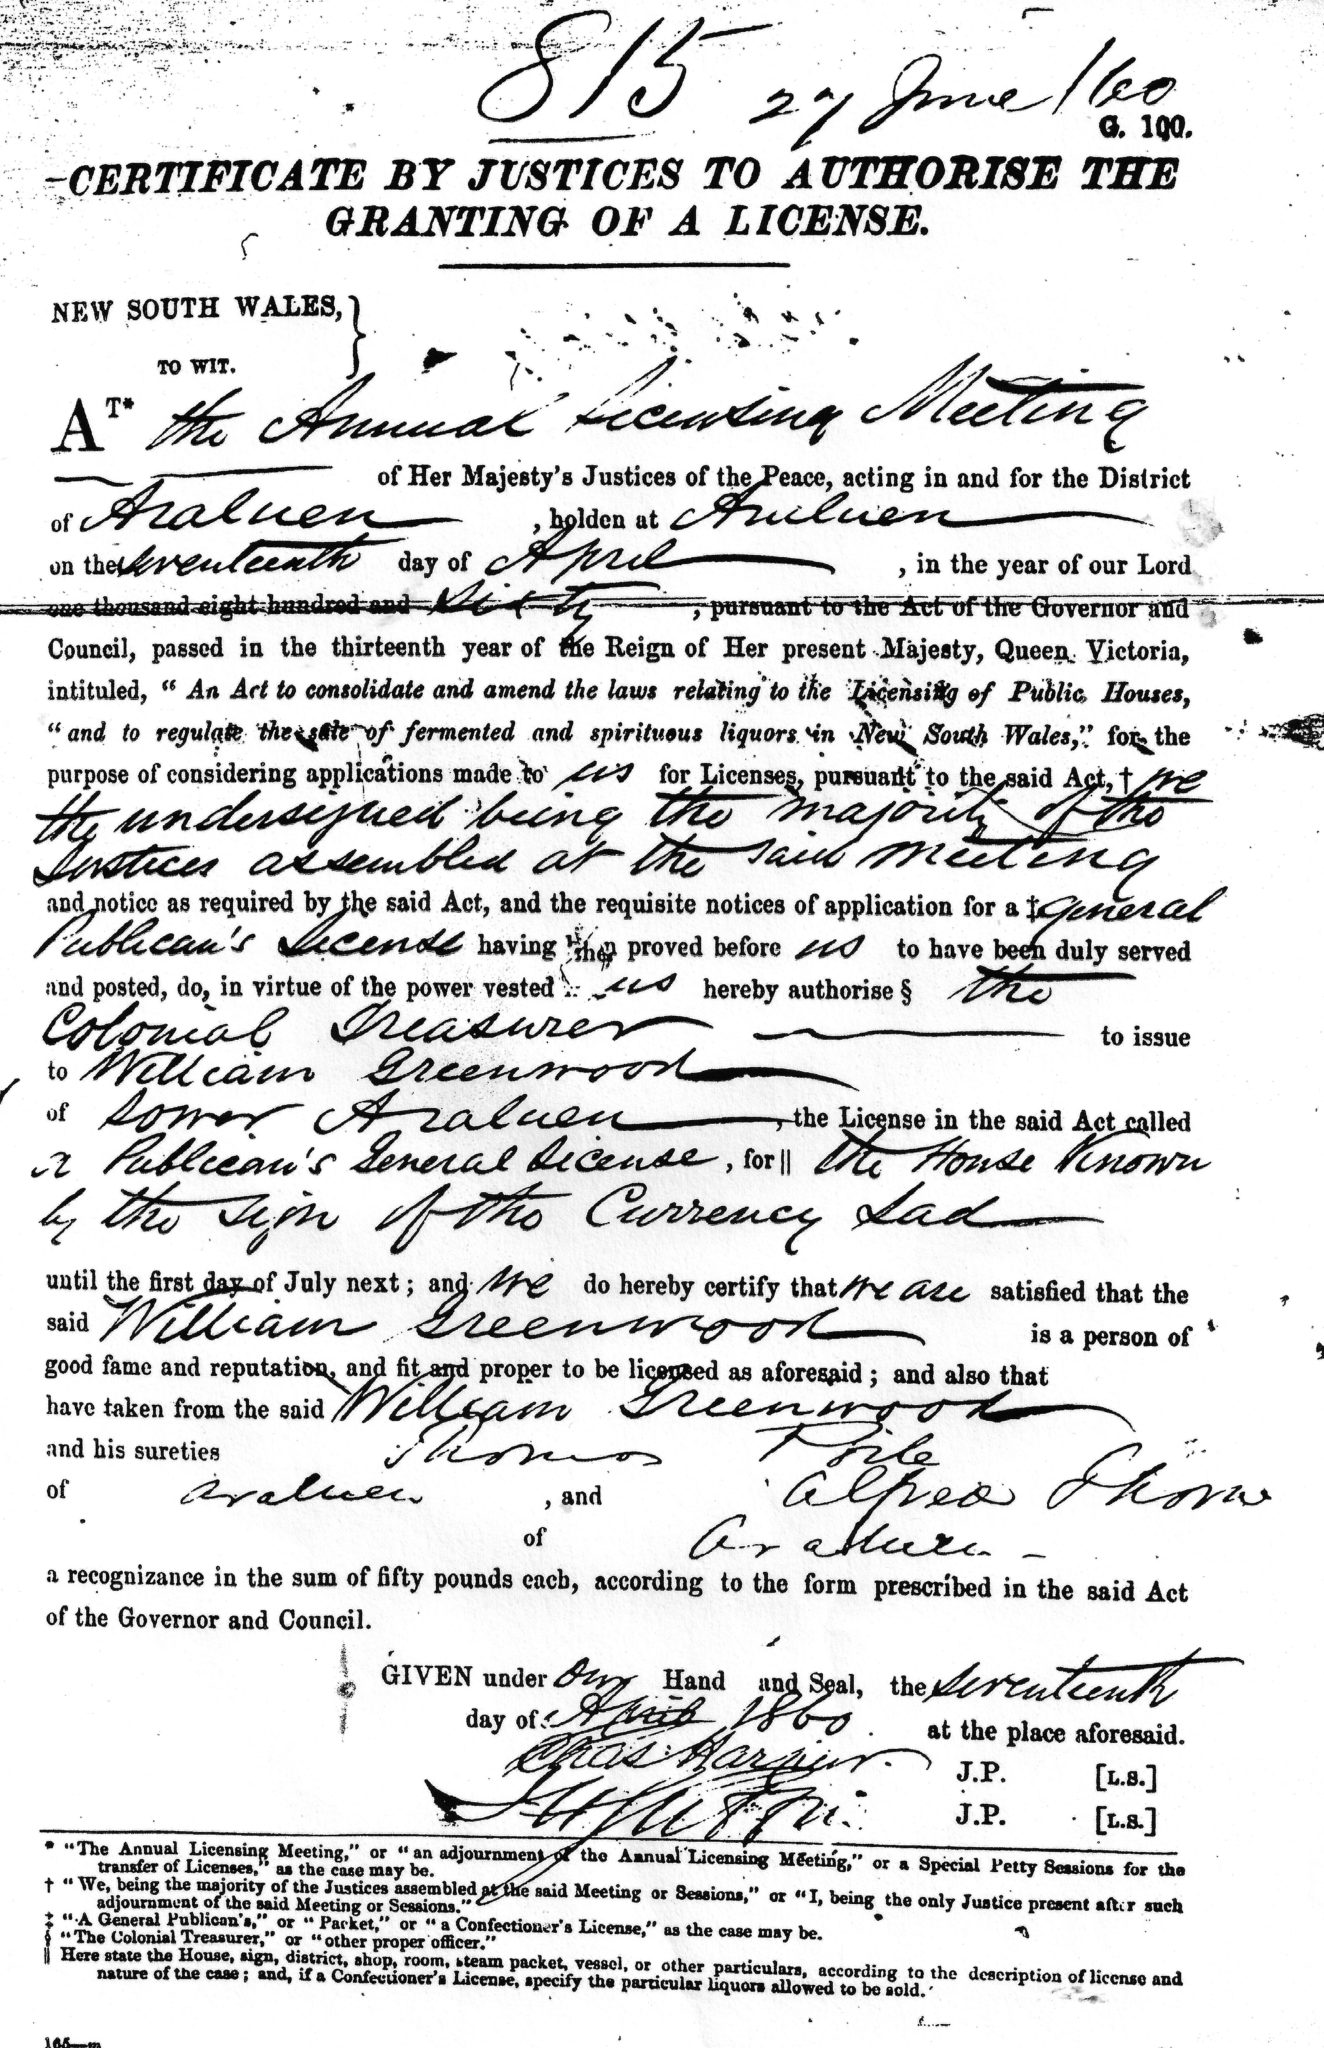 815 27 June /60
G. 100.
CERTIFICATE BY JUSTICES TO AUTHORISE THE
GRANTING OF A LICENSE.
NEW SOUTH WALES,
TO WIT.
AT* the Annual Licensing Meeting
of Her Majesty's Justices of the Peace, acting in and for the District
of Araluen , holden at Araluen
on the seventeenth day of April , in the year of our Lord
one thousand eight hundred and sixty , pursuant to the Act of the Governor and
Council, passed in the thirteenth year of the Reign of Her present Majesty, Queen Victoria,
intituled, "An Act to consolidate and amend the laws relating to the Licensing of Public Houses,
"and to regulate the sale of fermented and spirituous liquors in New South Wales," for the
purpose of considering applications made to us for Licenses, pursuant to the said Act, † we
the undersigned being the majority of the
Justices assembled at the said meeting
and notice as required by the said Act, and the requisite notices of application for a ‡ general
Publican's License having been proved before us to have been duly served
and posted, do, in virtue of the power vested in us hereby authorise § the
Colonial Treasurer to issue
to William Greenwood
of Lower Araluen , the License in the said Act called
a Publican's General License , for || the House Known
by the sign of the Currency Lad
until the first day of July next ; and we do hereby certify that we are satisfied that the
said William Greenwood is a person of
good fame and reputation, and fit and proper to be licensed as aforesaid ; and also that
have taken from the said William Greenwood
and his sureties Thomas
of Araluen , and Alfred Thorne
of Araluen
a recognizance in the sum of fifty pounds each, according to the form prescribed in the said Act
of the Governor and Council.
GIVEN under our Hand and Seal, the seventeenth
day of April 1860 at the place aforesaid.
Chas Harpur. J.P. [L.S.]
J.P. [L.S.]
* "The Annual Licensing Meeting," or "an adjournment of the Annual Licensing Meeting," or a Special Petty Sessions for the
transfer of Licenses," as the case may be.
† "We, being the majority of the Justices assembled at the said Meeting or Sessions," or "I, being the only Justice present after such
adjournment of the said Meeting or Sessions."
‡ "A General Publican's," or "Packet," or "a Confectioner's License," as the case may be.
§ "The Colonial Treasurer," or "other proper officer."
|| Here state the House, sign, district, shop, room, steam packet, vessel, or other particulars, according to the description of license and
nature of the case ; and, if a Confectioner's License, specify the particular liquors allowed to be sold.